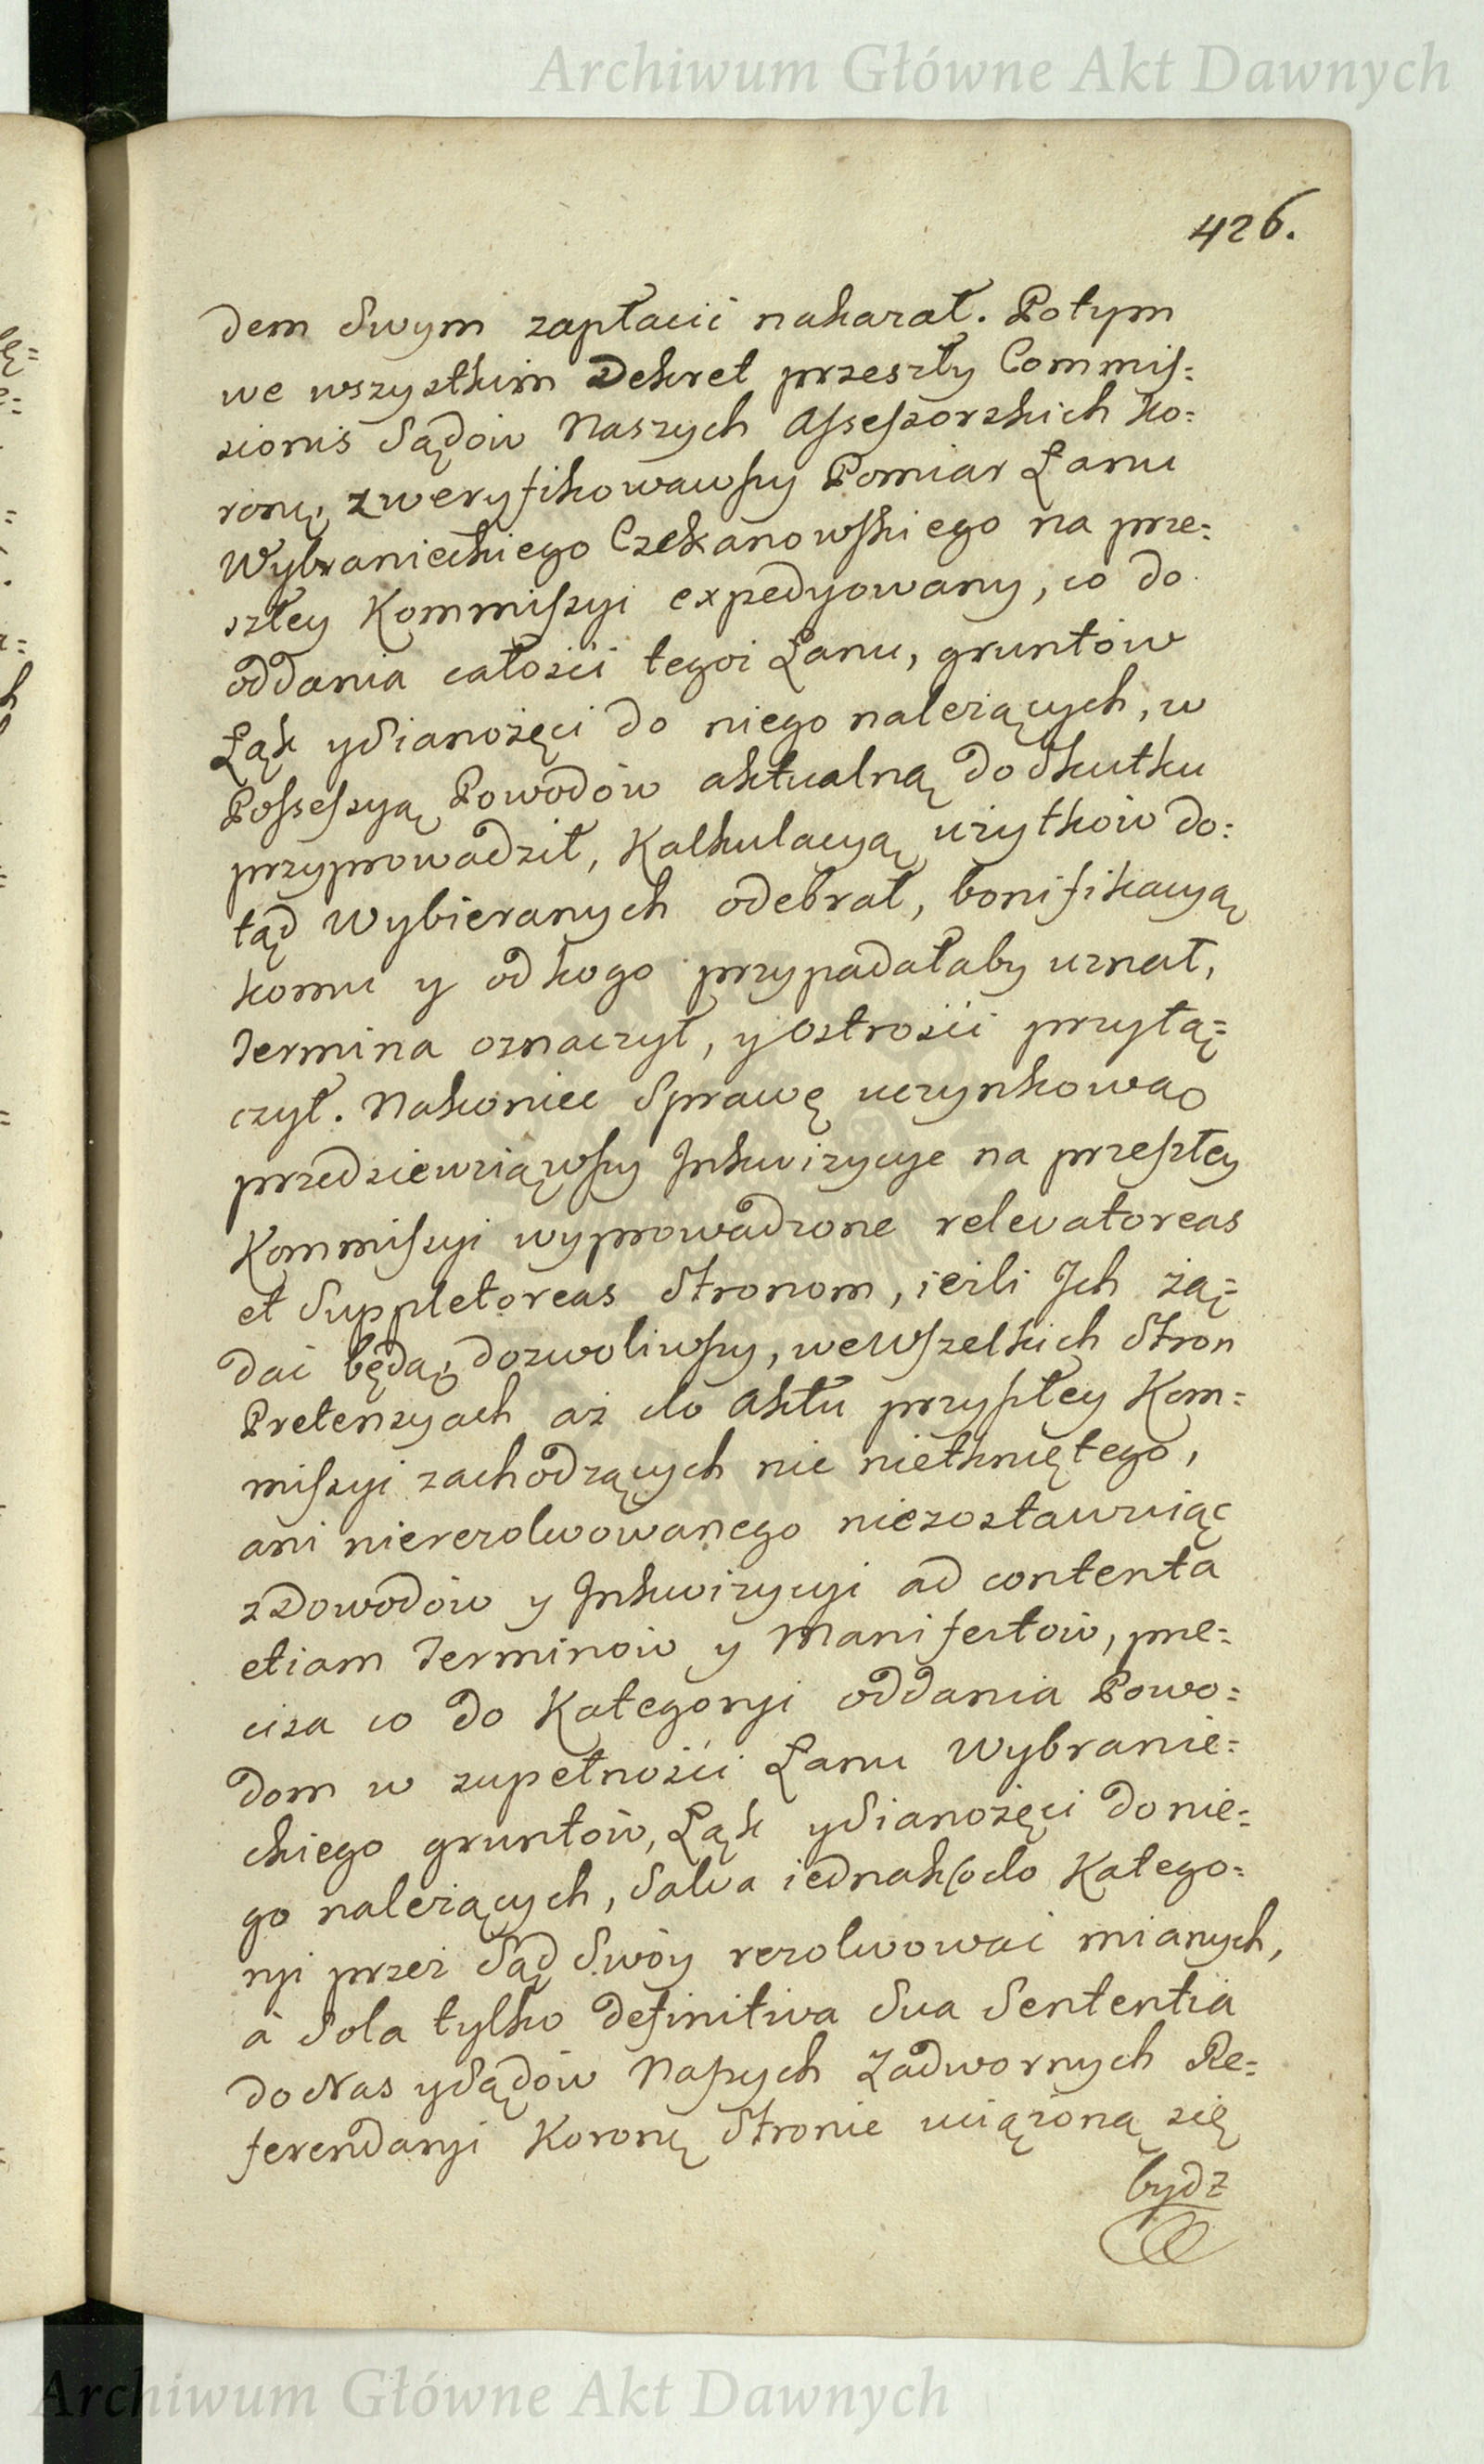 Archiwum Główne Akt Dawnych
426.
dem Swym zapłacić nakazał. Potym
we wszystkim Dekret przeszły Commis=
sionis Sądów Naszych Assessorskich Ko=
ronų, zweryfikowawszy Pomiar Łanu
Wybranieckiego Czekanowskiego na prze=
szłey Kommissyi expedyowany, co do
oddania całości tegoż Łanu, gruntów
Łąk y Sianożęci do niego należących, w
Possessyą Powodów aktualną do Skutku
przyprowadził, Kalkulacyą użytków do=
tąd Wybieranych odebrał, bonifikacyą
komu y od kogo przypadałaby uznał,
Termina oznaczył, y Ostrości przyłą=
czył. Nakoniec Sprawę uczynkową
przedsiewziąwszy Inkwizycye na przeszłey
Kommissyi wyprowadzone relevatoreas
et Suppletoreas Stronom, ieżli Ich żą=
dać będą, dozwoliwszy, we Wszelkich Stron
Pretensyach aż do Aktu przyszłey Kom=
missyi zachodzących nic nietkniętego,
ani nierezolwowanego niezostawuiąc
z Dowodów y Inkwizycyi ad contenta
etiam Terminów y Manifestów, prze=
cisa co do Kategoryi oddania Powo=
dom w zupełności Łanu Wybranie=
ckiego gruntów, Łąk y Sianożęci do nie=
go należących, Salva iednak co do Katego=
ryi przez Sąd Swóy rezolwować mianych,
à Sola tylko definitiva Sua Sententia
do Nas y Sądów Naszych Zadwornych Re=
ferendaryi Koronų Stronie uciążoną się
bydz
Archiwum Główne Akt Dawnych